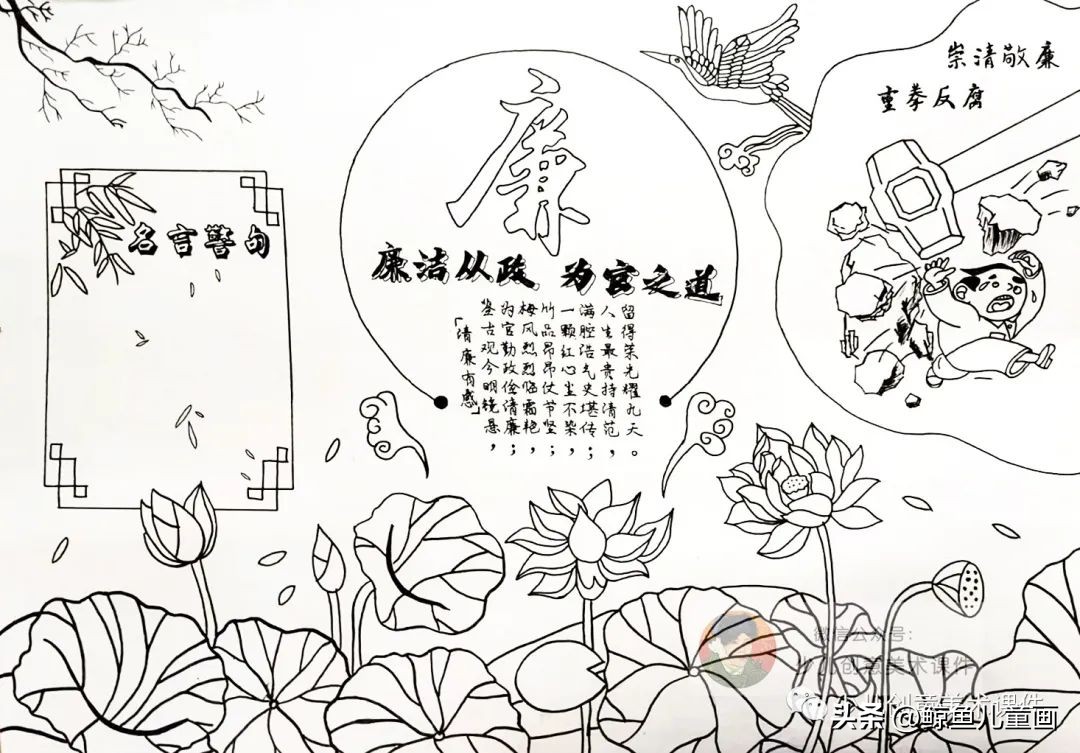 崇清敬廉
重拳反腐
廉
名言警句
廉洁从政 为官之道
「清廉有感」
鉴古观今明镜悬，
为官勤政俭清廉；
梅风烈烈临霜艳，
竹品昂昂仗节坚；
一颗红心尘不染，
满腔浩气史堪传；
人生最贵持清范，
留得荣光耀九天。
微信公众号:
少儿创意美术课件
创意美术课件
头条 @鲸鱼儿童画